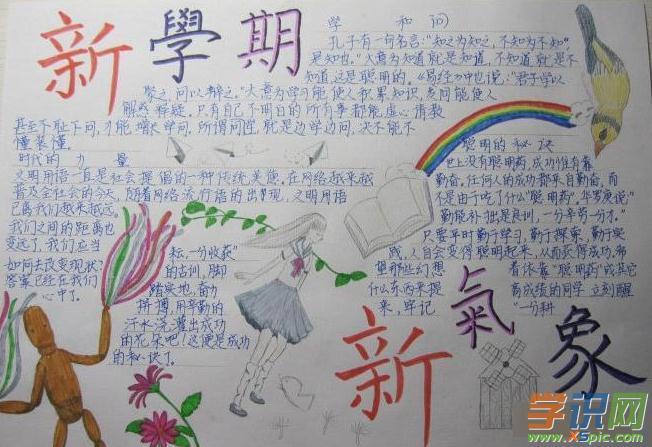 新學期
学 和问
孔子有一句名言：“知之为知之，不知为不知，
是知也。”大意为知道就是知道，不知道就是不
知道这是聪明的。《易经》中也说：“君子学以
聚之，问以辩之。”大意为学习能使人积累知识，发问能使人
解惑释疑。只有自己不明白的所有事都能虚心请教
甚至不耻下问，才能增长学问，所谓问学就是边学边问，决不能不
懂装懂。
时代的 力 量
文明用语一直是社会提倡的一种传统美德，在网络越来越
普及全社会的今天，随着网络流行语的出现，文明用语
已离我们越来越远，
我们之间的距离也
变远了，我们应当
如何去改变现状？
答案已经在我们
心中了。
聪明的秘决
世上没有聪明药，成功惟有靠
勤奋。任何人的成功都来自勤奋，而
不是由于吃了什么“聪明药”，华罗庚说：“
勤能补拙是良训，一分辛劳一分才。”
只要平时勤于学习，勤于探索，勤于实
践，人自会变得聪明起来，从而获得成功。希
望那些幻想 着依靠“聪明药”或其它
什么东西来提 高成绩的同学立刻醒
来，牢记 “一份耕
耘，一份收获”
的古训，脚
踏实地，奋力
拼搏，用辛勤的
汗水浇灌出成功
的花朵吧！这便是成功
的秘诀了。
新氣象
学识网
www.xspic.com